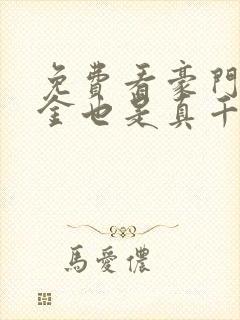 免費看豪門
金也是真千
馬愛儂